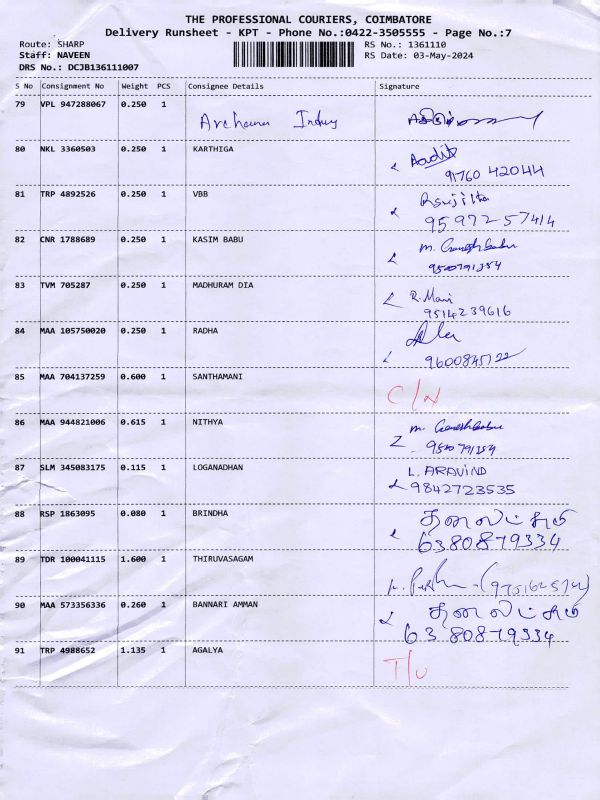 THE PROFESSIONAL COURIERS, COIMBATORE
Delivery Runsheet - KPT - Phone No.:0422-3505555 - Page No.:7
Route: SHARP RS No.: 1361110
Staff: NAVEEN RS Date: 03-May-2024
DRS No.: DCJB136111007
S No Consignment No Weight PCS Consignee Details Signature
79 VPL 947288067 0.250 1
80 NKL 3360503 0.250 1 KARTHIGA Aadit
91760 42044
81 TRP 4892526 0.250 1 VBB
95972 57414
82 CNR 1788689 0.250 1 KASIM BABU M. Ganesh babu
9500791354
83 TVM 705287 0.250 1 MADHURAM DIA R. Mani
9514239616
84 MAA 105750020 0.250 1 RADHA
9600845722
85 MAA 704137259 0.600 1 SANTHAMANI
86 MAA 944821006 0.615 1 NITHYA M. Ganesh babu
9500791354
87 SLM 345083175 0.115 1 LOGANADHAN L. ARAVIND
9842723535
88 RSP 1863095 0.080 1 BRINDHA
6380879334
89 TDR 100041115 1.600 1 THIRUVASAGAM
90 MAA 573356336 0.260 1 BANNARI AMMAN
6380879334
91 TRP 4988652 1.135 1 AGALYA